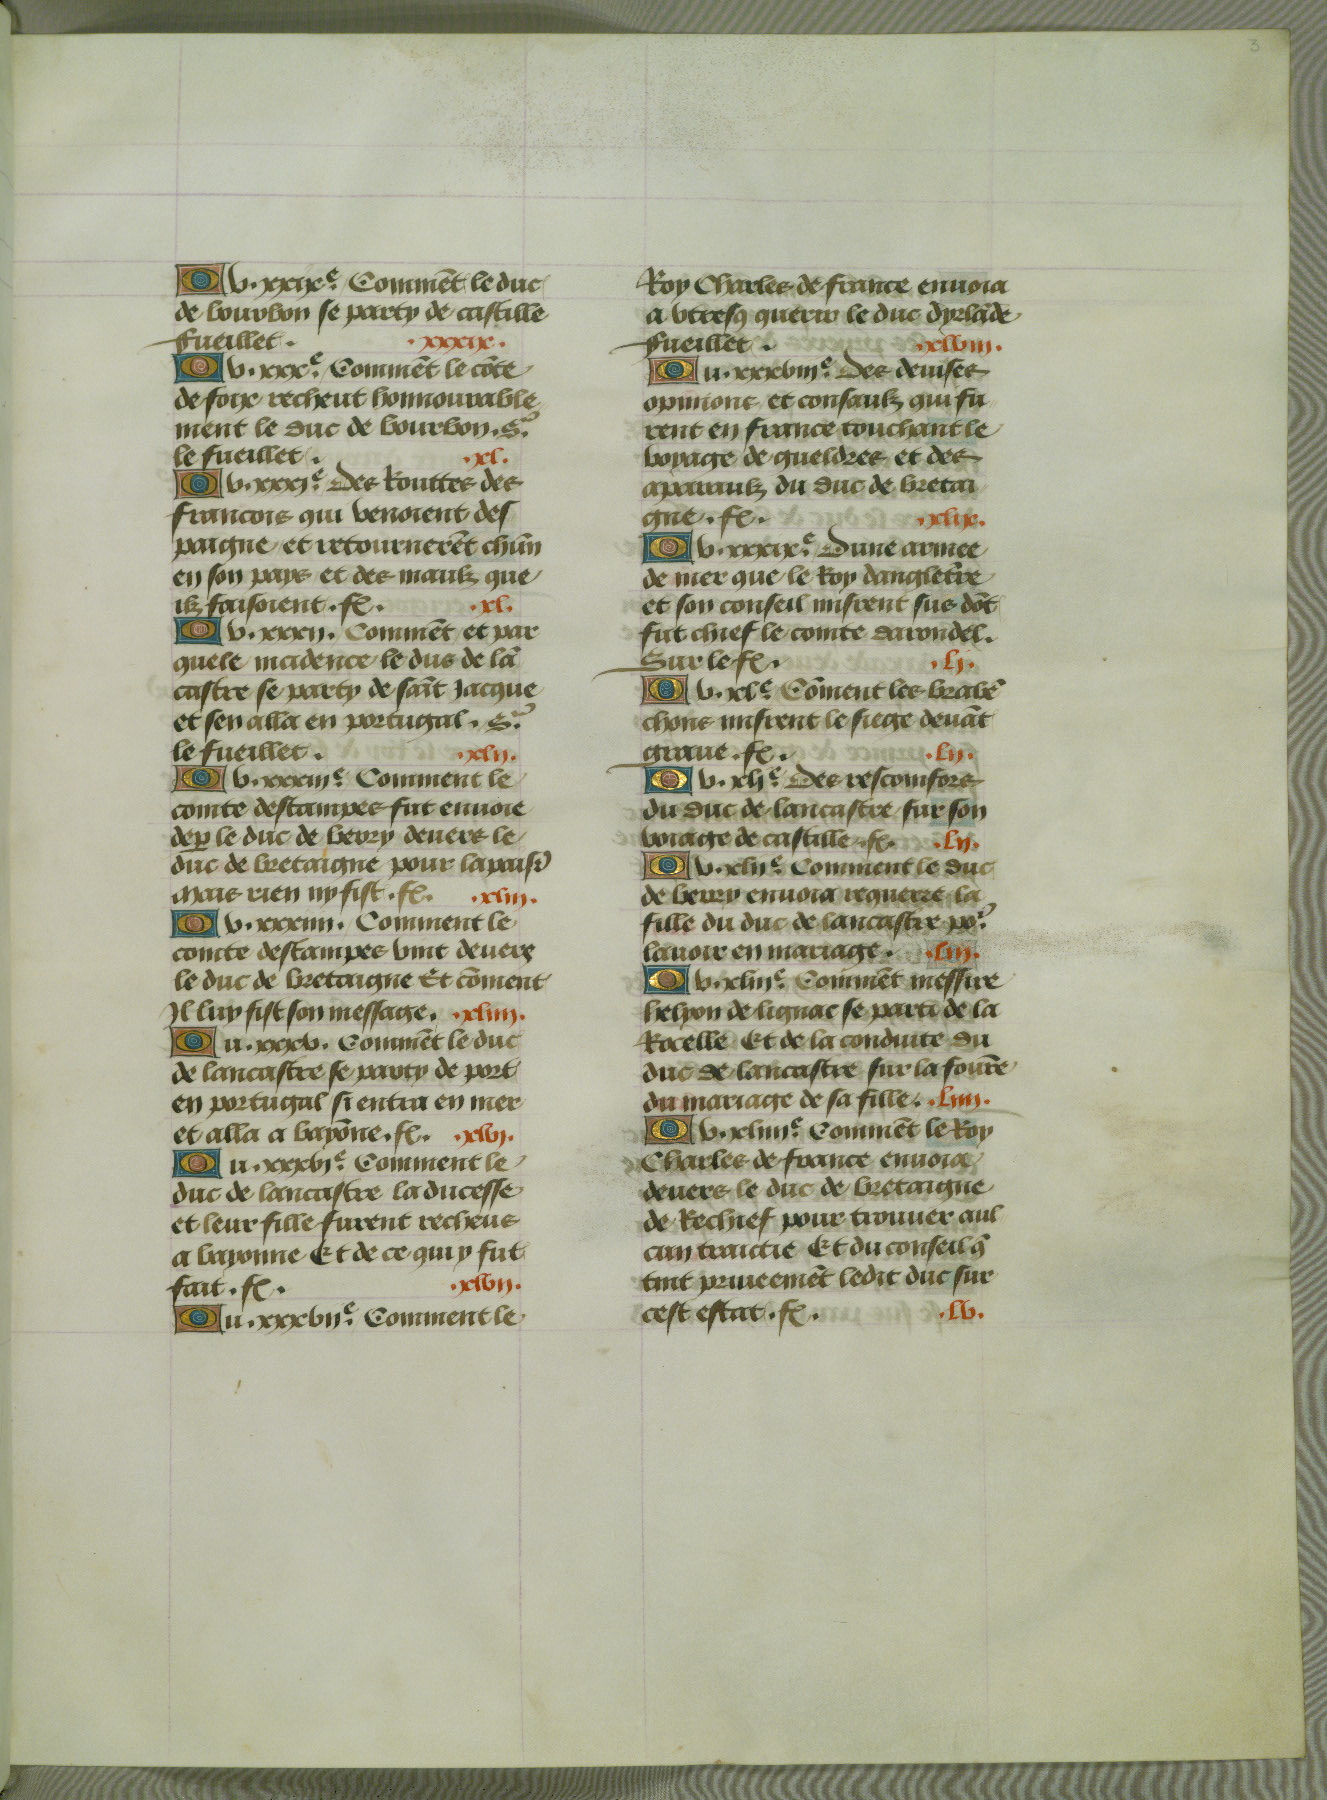 3
Ou .xxixe. Comment le duc
de bourbon se party de castille
fueillet . . xxxix .
Ou .xxxe. Comment le cōte
de foix recheut honnourable
ment le duc de bourbon . Sr
le fueillet . .xl.
Ou .xxxie. Des Routtes des
francois qui venoient des
paigne et retournerēt chūn
en son pays et des maulz que
ilz faisoient . fᵒ . .xl.
Ou .xxxii. Commēt et par
quele incidence le duc de lā
castre se party de saīt Jacque
et sen alla en portugal . Sr
le fueillet . .xlii.
Ou .xxxiiie. Comment le
comte destampes fut enuoie
dep le duc de berry deuers le
duc de bretaigne pour lapaisr̄
Mais rien ny fist . fᵒ . .xliii.
Ou .xxxiiii. Comment le
comte destampes vint deuers
le duc de bretaigne Et cōment
Il luy fist son message . .xliiii.
Ou .xxxv. Commēt le duc
de lancastre se party de port
en portugal si entra en mer
et alla a bayōne . fᵒ . .xlvi.
Ou .xxxvie. Comment le
duc de lancastre la ducesse
et leur fille furent recheus
a bayonne Et de ce qui y fut
fait . fᵒ . .xlvii.
Ou .xxxviie. Comment le
Roy Charles de france enuoia
a vtresq querir le duc dyrlāde
fueillet . .xlviii.
Ou .xxxviiie. Des deuises
opinions et consaulz qui fu
rent en france touchant le
voyage de gueldres et des
aparaulz du duc de bretai
gne . fᵒ . .xlix.
Ou .xxxixe. Dune armee
de mer que le Roy dangletr̄e
et son conseil misrent sus dōt
fut chief le comte darondel .
Sur le fᵒ . .li.
Ou .xle. Cōment les brabē
chons misrent le siege deuāt
graue . fᵒ . .lii.
Ou .xlie. Des resconfors
du duc de lancastre sur son
voiage de castille . fᵒ . .lii.
Ou .xliie. Comment le duc
de berry enuoia requerre la
fille du duc de lancastre por
lauoir en mariage . .liii.
Ou .xliiie. Commēt messire
helyon de lignac se parti de la
Rocelle Et de la conduite du
duc de lancastre sur la fourē
du mariage de sa fille . .liiii.
Ou .xliiiie. Commēt le Roy
Charles de france enuoia
deuers le duc de bretaigne
de Rechief pour trouuer aul
cun traictie Et du conseil q̄
tint priueemēt ledit duc sur
cest estat . fᵒ . .lv.